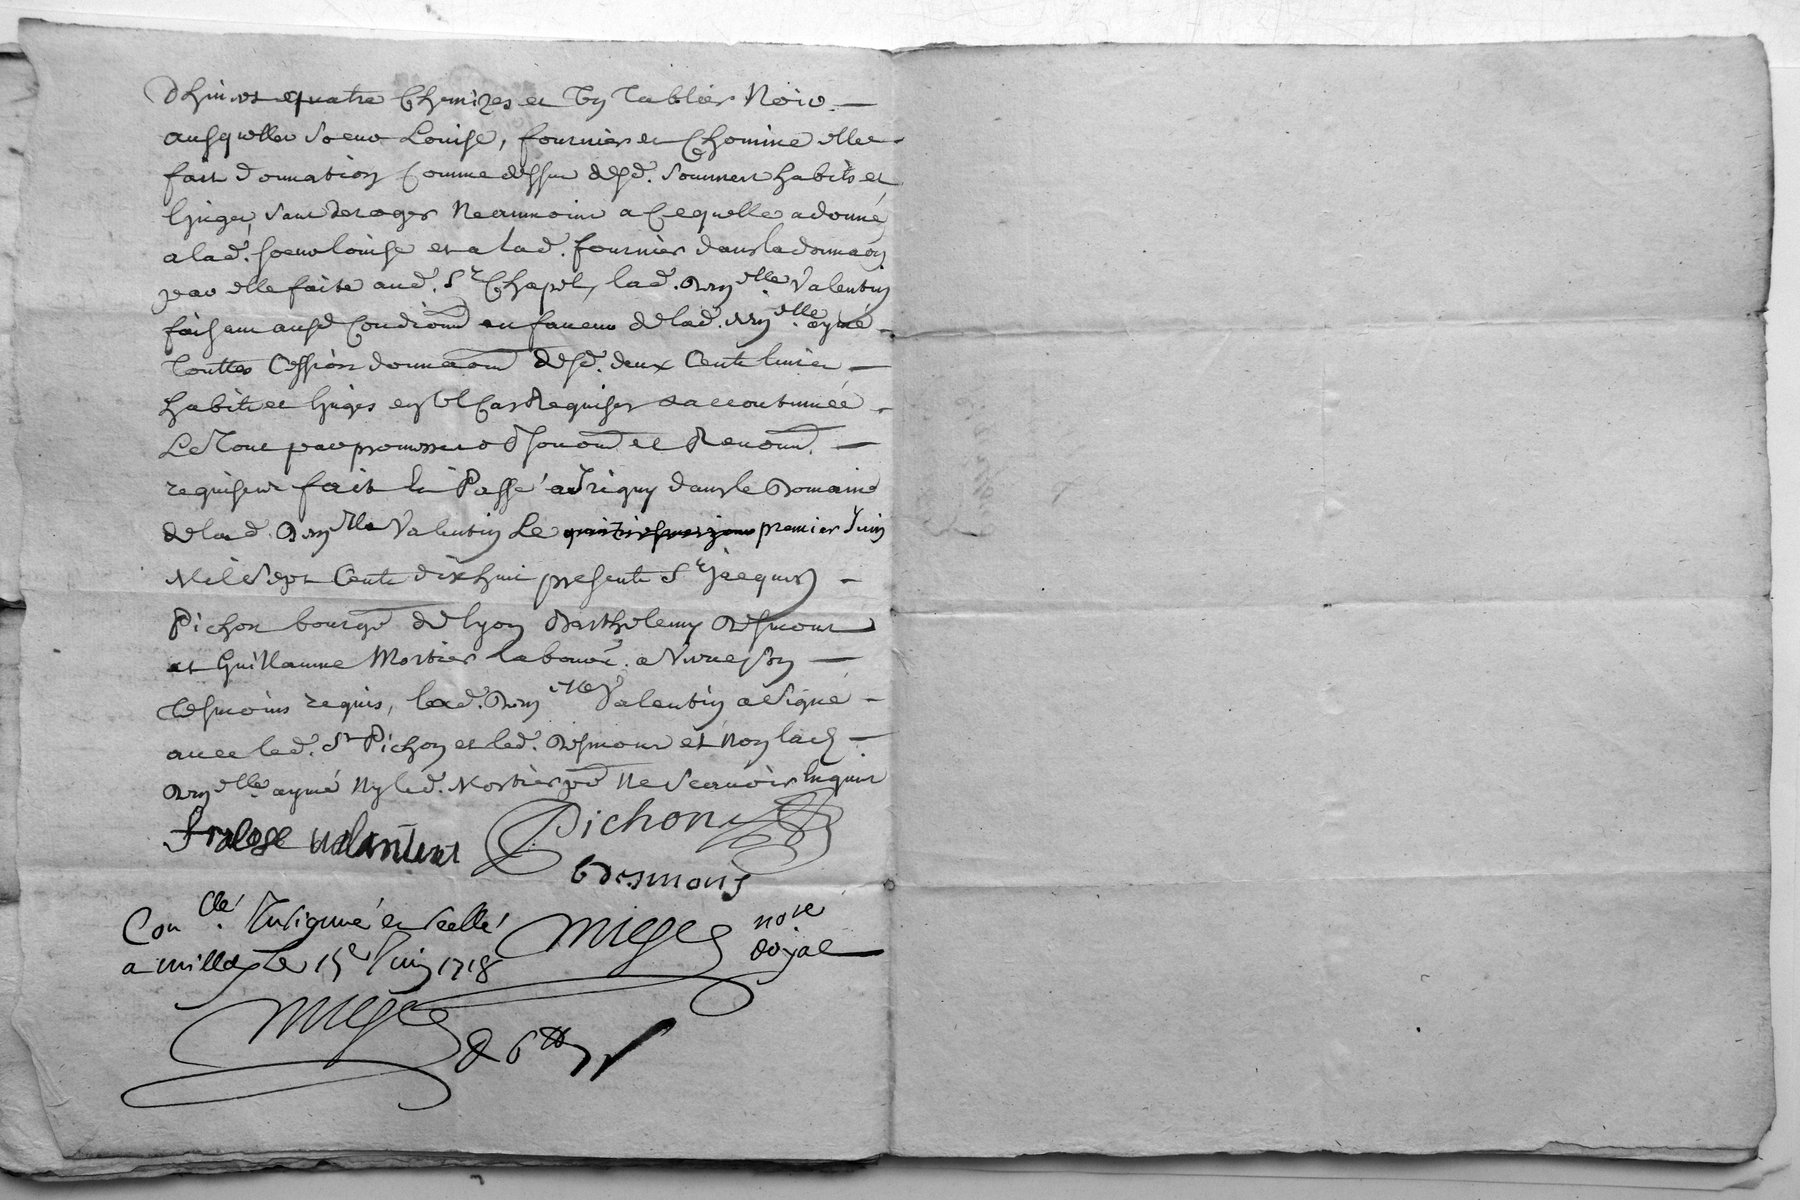 d'hiver et quatre Chemizes et Un Tablier Noir
ausquelles soeur Louise, fournier et Thomine elle
fait donnation Comme dessus desd. sommes habits et
linges, sans deroger Neanmoins a Ce quelle a donné
a lad. soeur louise et a lad. fournier dans la donnaōn
par elle faite aud. Sr Chapel, lad. Dmlle Valentin
faisant ausd Condiōns en faveur de lad. Dmlle aymé
Touttes Cession donnaōns desd. deux Cents livres
habits et linges en tel Cas Requises & accoutumée
Le Tout par promesses et Renōn.
requises fait & Passé a Irigny dans le Domaine
de lad. Dmlle Valentin Le premier Juin
Mil Sept Cents dix huit presents Sr Jacques
Pichon bourge. de lyon Barthelemy Desmours
et Guillaume Mortier labour. a Vourles
tesmoins requis, lad. Dmlle Valentin a signé
avec led. Sr Pichon et led. Desmours et non lad.
Dmlle aymé Ny led. Mortier pr Ne Scavoir Enquis
valantine Pichon
b desmours
Conllé. Insigné et scellé mieges nore
a millery le 15e Juin 1718 Royal
mieges
& 6tt